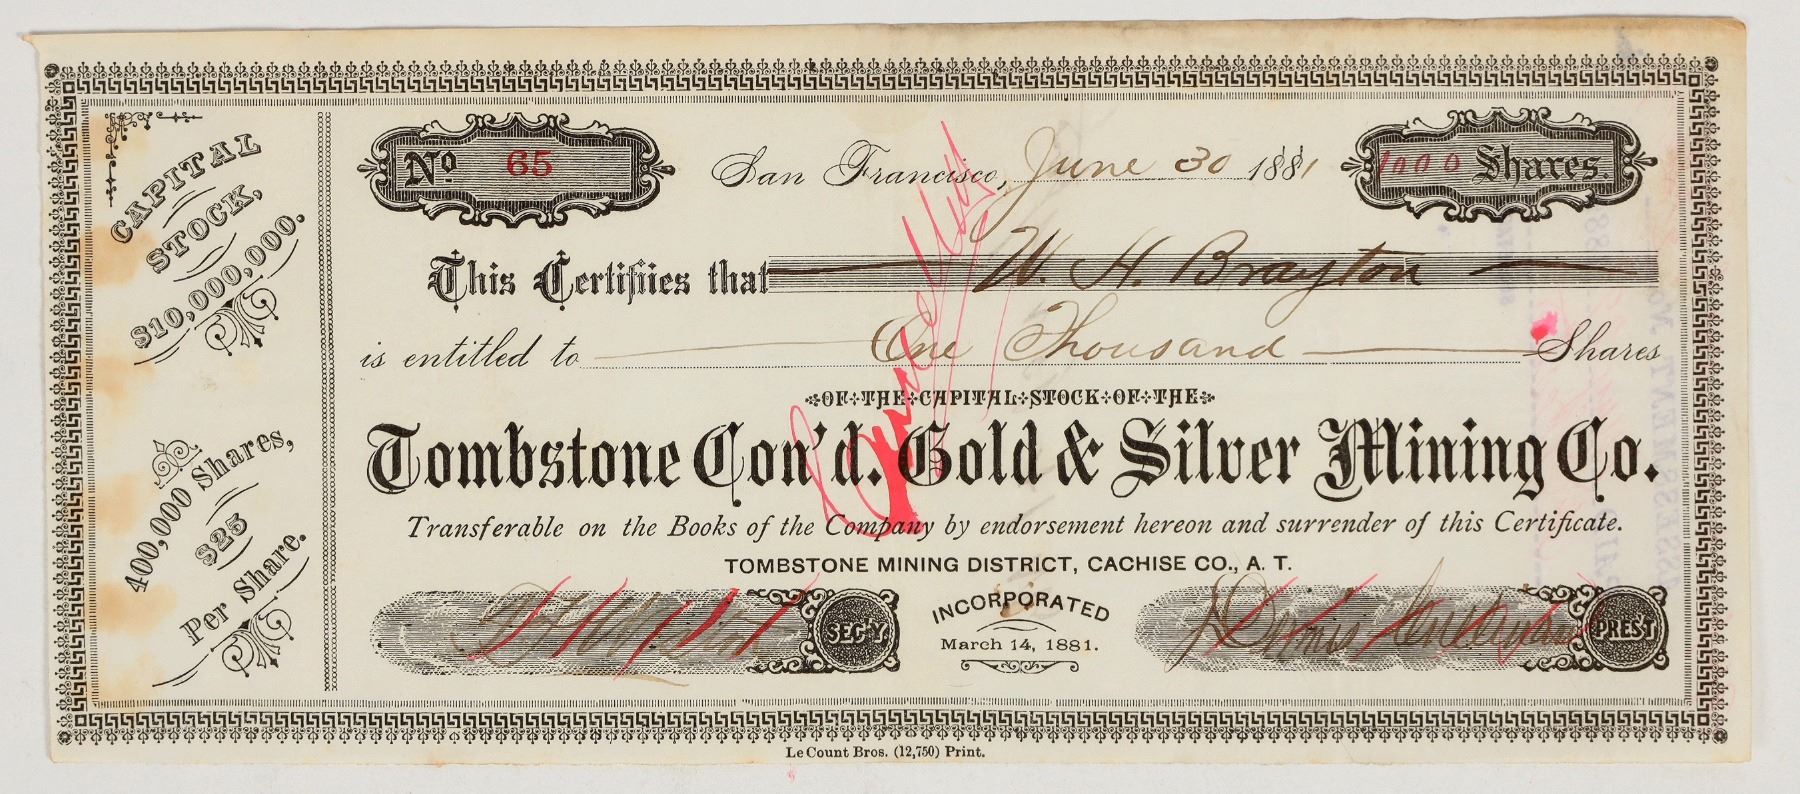 CAPITAL
STOCK,
$10,000,000.
400,000 Shares,
$25
Per Share.
No 65
San Francisco, June 30 1881
1000 Shares.
This Certifiies that W. H. Brayton
is entitled to One Thousand Shares
OF THE CAPITAL STOCK OF THE
Tombstone Con'd. Gold & Silver Mining Co.
Transferable on the Books of the Company by endorsement hereon and surrender of this Certificate.
TOMBSTONE MINING DISTRICT, CACHISE CO., A. T.
SEC'Y
INCORPORATED
March 14, 1881.
PREST
Cancelled
Le Count Bros. (12,750) Print.